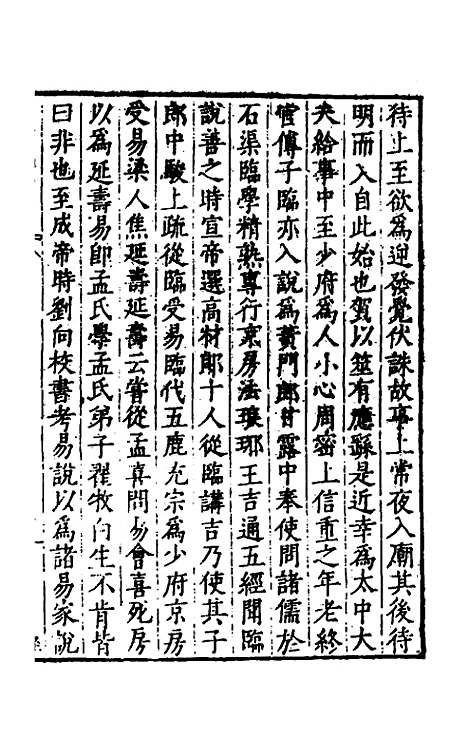 待止至欲爲逆發覺伏誅故事上常夜入廟其後待
明而入自此始也賀以筮有應繇是近幸爲太中大
夫給事中至少府爲人小心周密上信重之年老終
官傳子臨亦入說爲黃門郎甘露中奉使問諸儒於
石渠臨學精熟專行京房法瑯琊王吉通五經聞臨
說善之時宣帝選高材郎十人從臨講吉乃使其子
郎中駿上疏從臨受易臨代五鹿充宗爲少府京房
受易梁人焦延壽延壽云嘗從孟喜問易會喜死房
以爲延壽易卽孟氏學孟氏弟子翟牧白生不肯皆
曰非也至成帝時劉向校書考易說以爲諸易家說